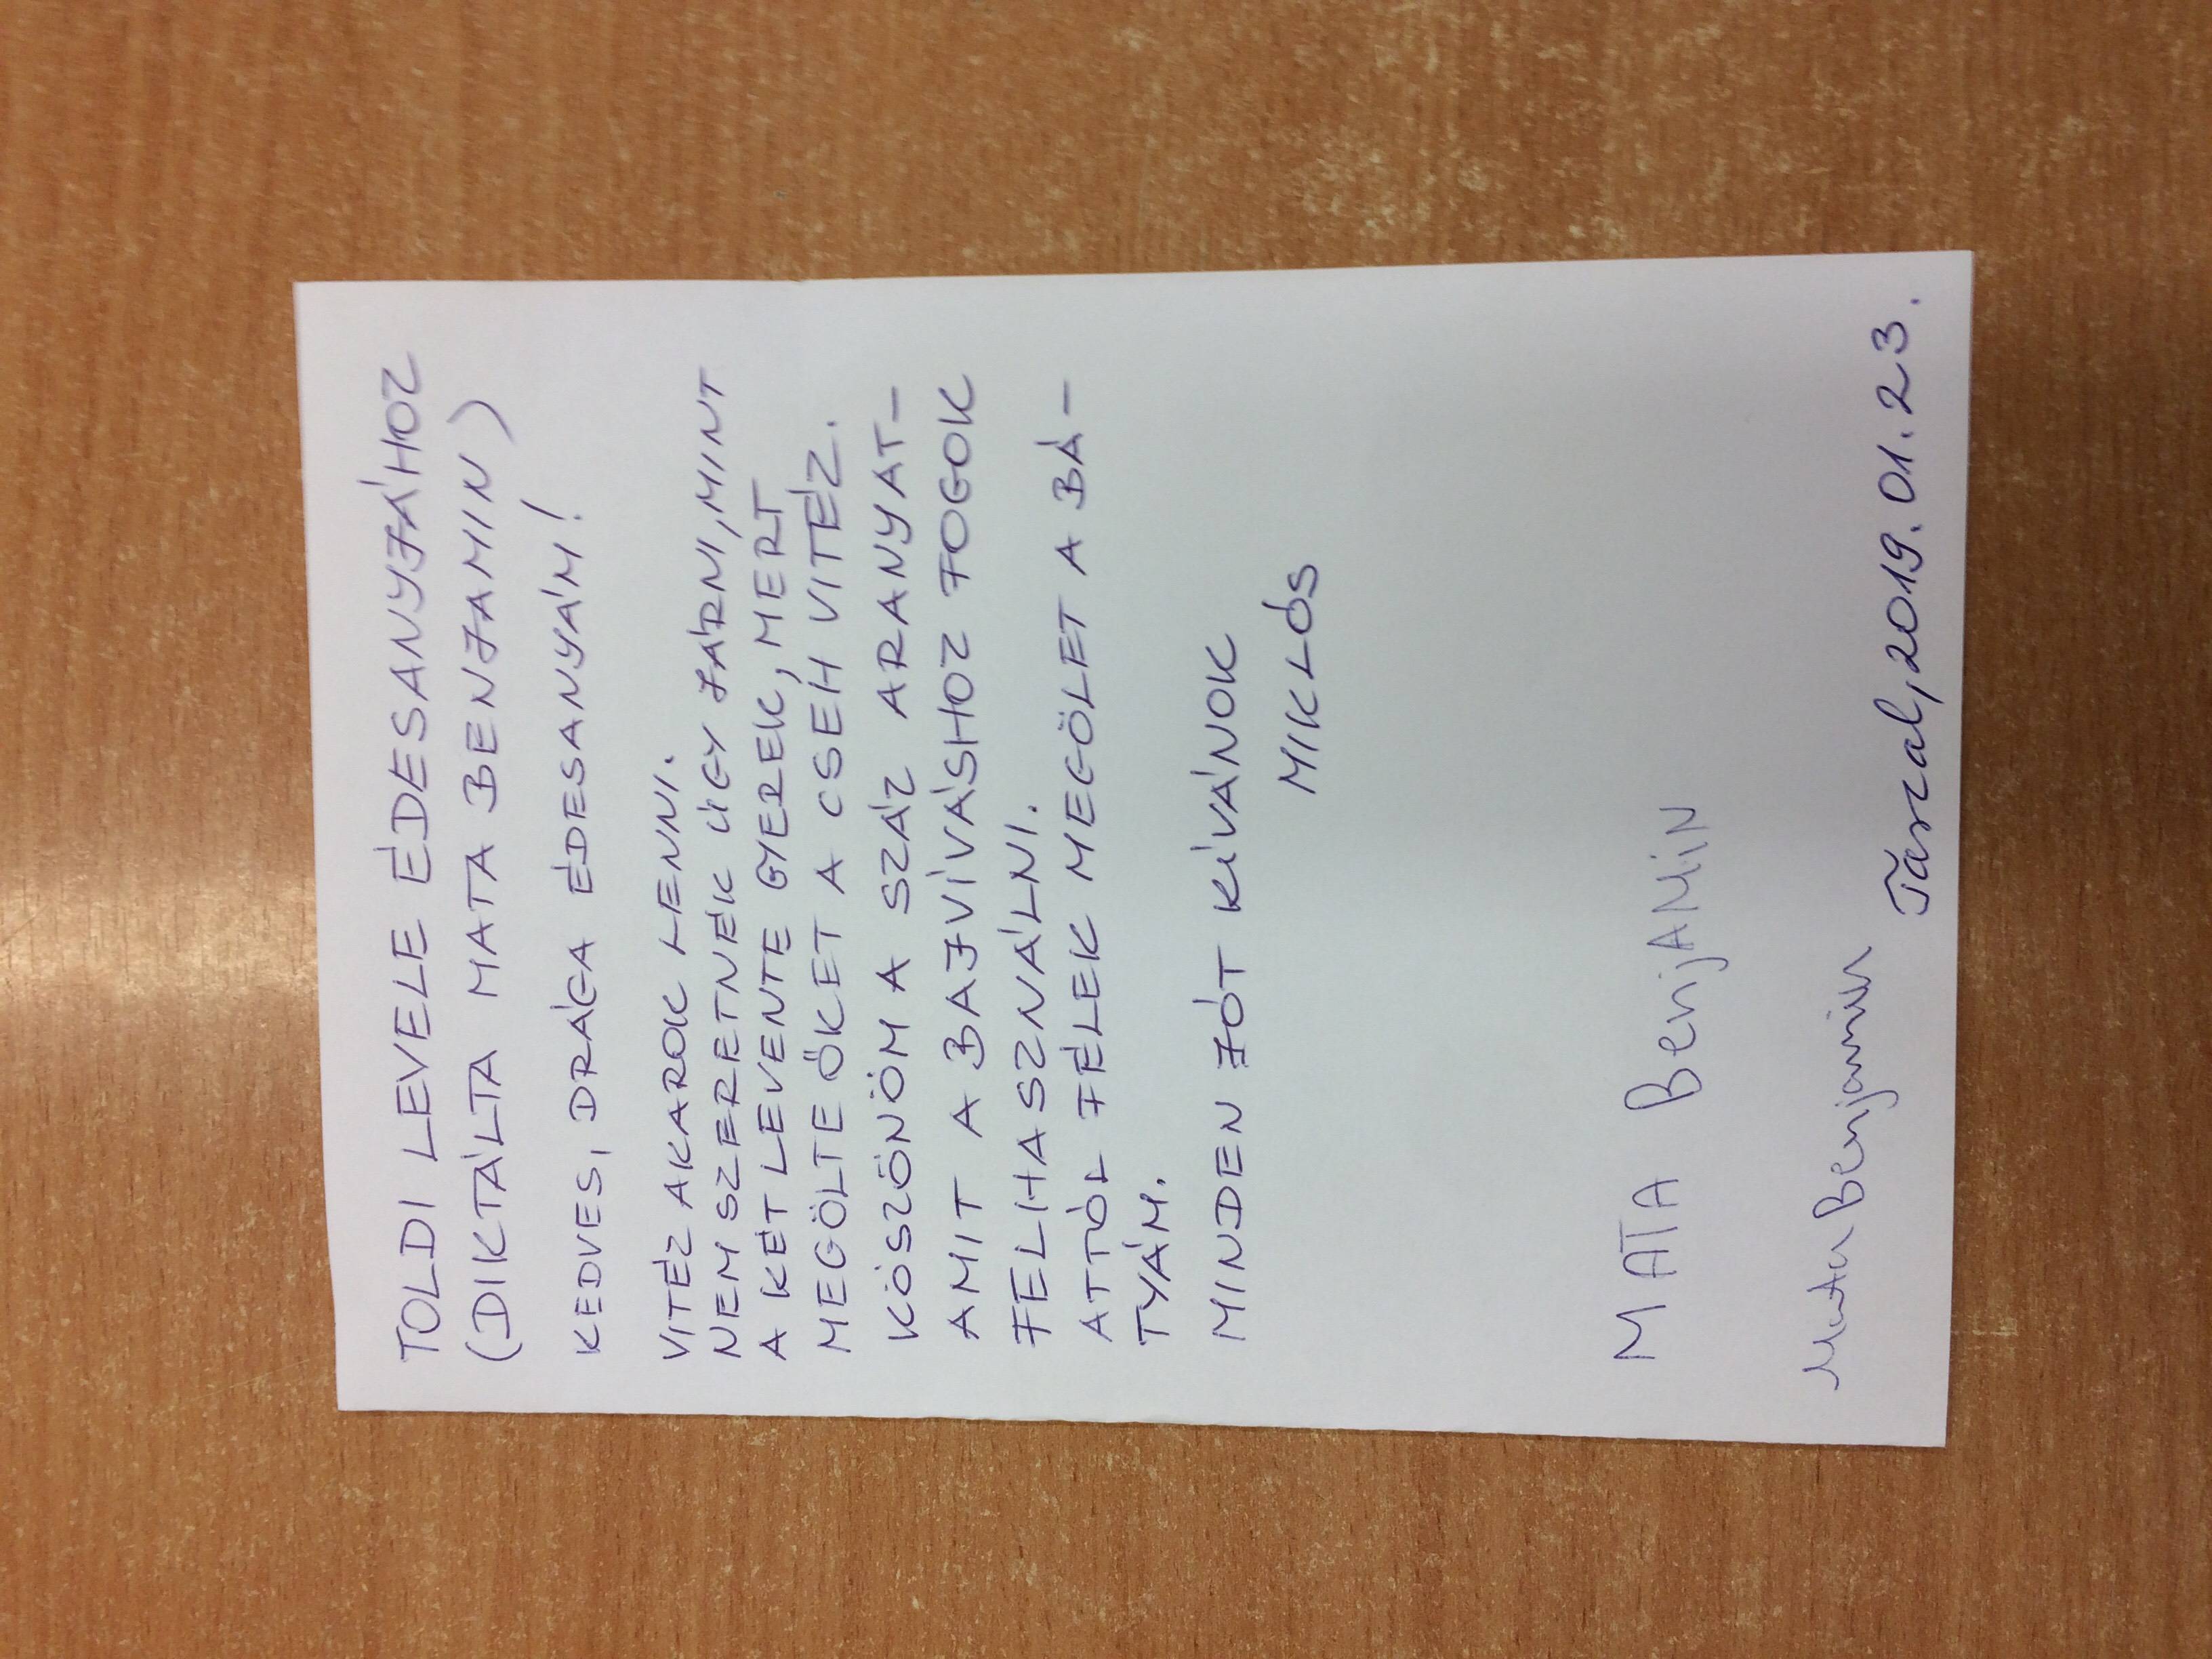 TOLDI LEVELE ÉDESANYJÁHOZ
(DIKTÁLTA MATA BENJAMIN)
KEDVES, DRÁGA ÉDESANYÁM!
VITÉZ AKAROK LENNI.
NEM SZERETNÉK ÚGY JÁRNI, MINT
A KÉT LEVENTE GYEREK, MERT
MEGÖLTE ŐKET A CSEH VITÉZ.
KÖSZÖNÖM A SZÁZ ARANYAT-
AMIT A BAJVÍVÁSHOZ FOGOK
FELHASZNÁLNI.
ATTÓL FÉLEK MEGÖLET A BÁ-
TYÁM.
MINDEN JÓT KÍVÁNOK
MIKLÓS
MATA BenjAMiN
Mata Benjamin
Tarcal, 2019.01.23.